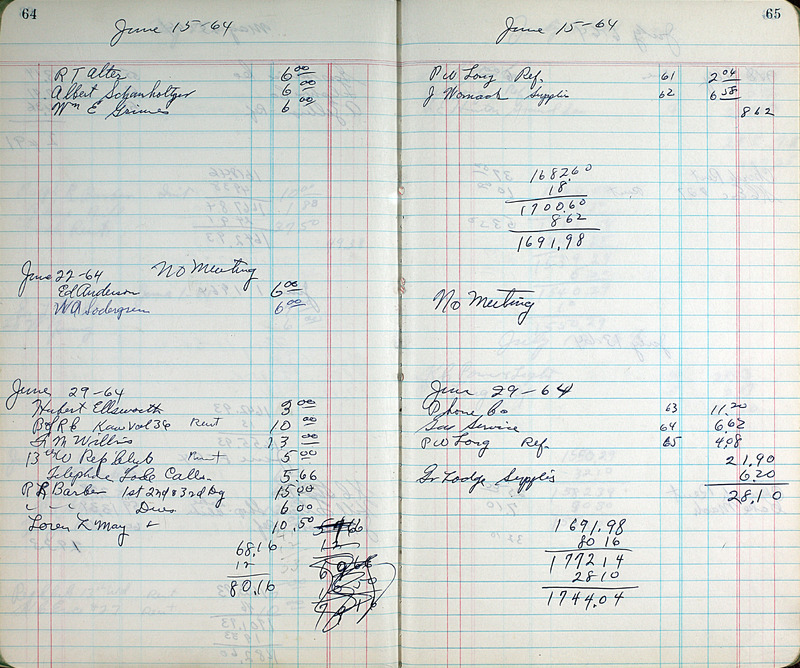 64
June 15-64
R T Alter 6 00
Albert Schanholtzer 6 00
Wm E Grimes 6 00
June 22-64 No Meeting
Ed Anderson 6 00
W A Sodergren 6 00
June 29-64
Hubert Ellsworth 3 00
B of R B Kaw Vol 36 Rent 10 00
G M Willis 13 00
13 Rep Club Rent 5 00
Telephne Lodge Calls 5.66
R L Barber 1st 2nd & 3rd Dg 15 00
" " " Dues 6 00
Loren K May 10.50
68.16
12
80.16
65
June 15-64
P W Long Ref. 61 2 04
J Womack Supplis 62 6 58
8 62
1682.60
18.
1700.60
8.62
1691.98
No Meeting
June 29-64
Phone Co 63 11.20
Gas Service 64 6.62
P W Long Ref. 65 4.08
21.90
Gr Lodge Supplis 6.20
28.10
1691.98
80 16
1772 14
28 10
1744.04